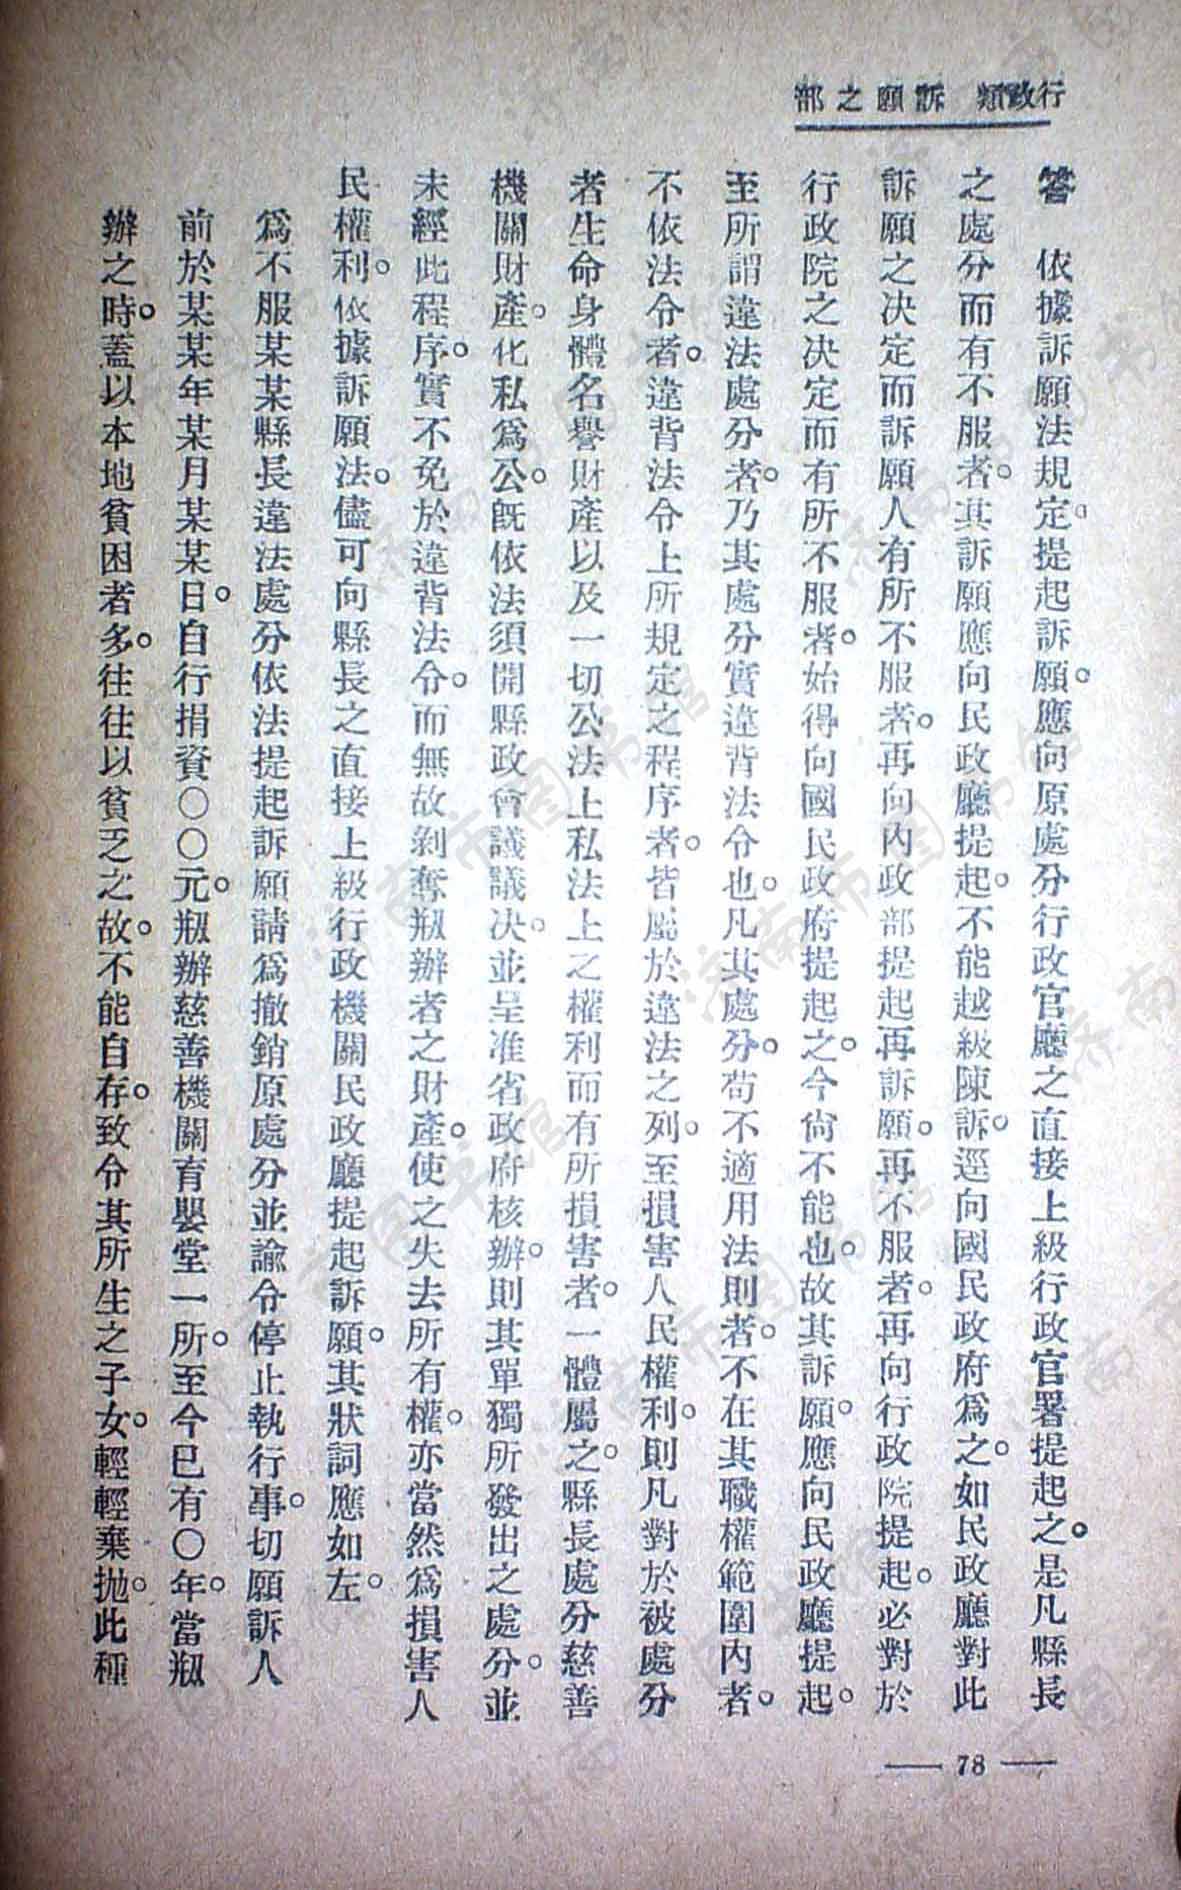 行政類 訴願之部
答 依據訴願法規定。提起訴願。應向原處分行政官廳之直接上級行政官署提起之。是凡縣長
之處分而有不服者。其訴願應向民政廳提起。不能越級陳訴。逕向國民政府爲之。如民政廳對此
訴願之决定而訴願人有所不服者。再向內政部提起再訴願。再不服者。再向行政院提起。必對於
行政院之决定而有所不服者。始得向國民政府提起之。今尙不能也。故其訴願。應向民政廳提起。
至所謂違法處分者。乃其處分實違背法令也。凡其處分。苟不適用法則者。不在其職權範圍內者。
不依法令者。違背法令上所規定之程序者。皆屬於違法之列。至損害人民權利。則凡對於被處分
者生命身體名譽財產以及一切公法上私法上之權利而有所損害者。一體屬之。縣長處分慈善
機關財產。化私爲公。旣依法須開縣政會議議决。並呈准省政府核辦。則其單獨所發出之處分。並
未經此程序。實不免於違背法令。而無故剝奪剏辦者之財產。使之失去所有權。亦當然爲損害人
民權利。依據訴願法。儘可向縣長之直接上級行政機關民政廳提起訴願。其狀詞應如左。
爲不服某某縣長違法處分依法提起訴願請爲撤銷原處分並諭令停止執行事。切願訴人
前於某某年某月某某日。自行捐資〇〇元。剏辦慈善機關育嬰堂一所。至今已有〇年。當剏
辦之時。蓋以本地貧困者多。往往以貧乏之故。不能自存。致令其所生之子女。輕輕棄抛。此種
— 78 —